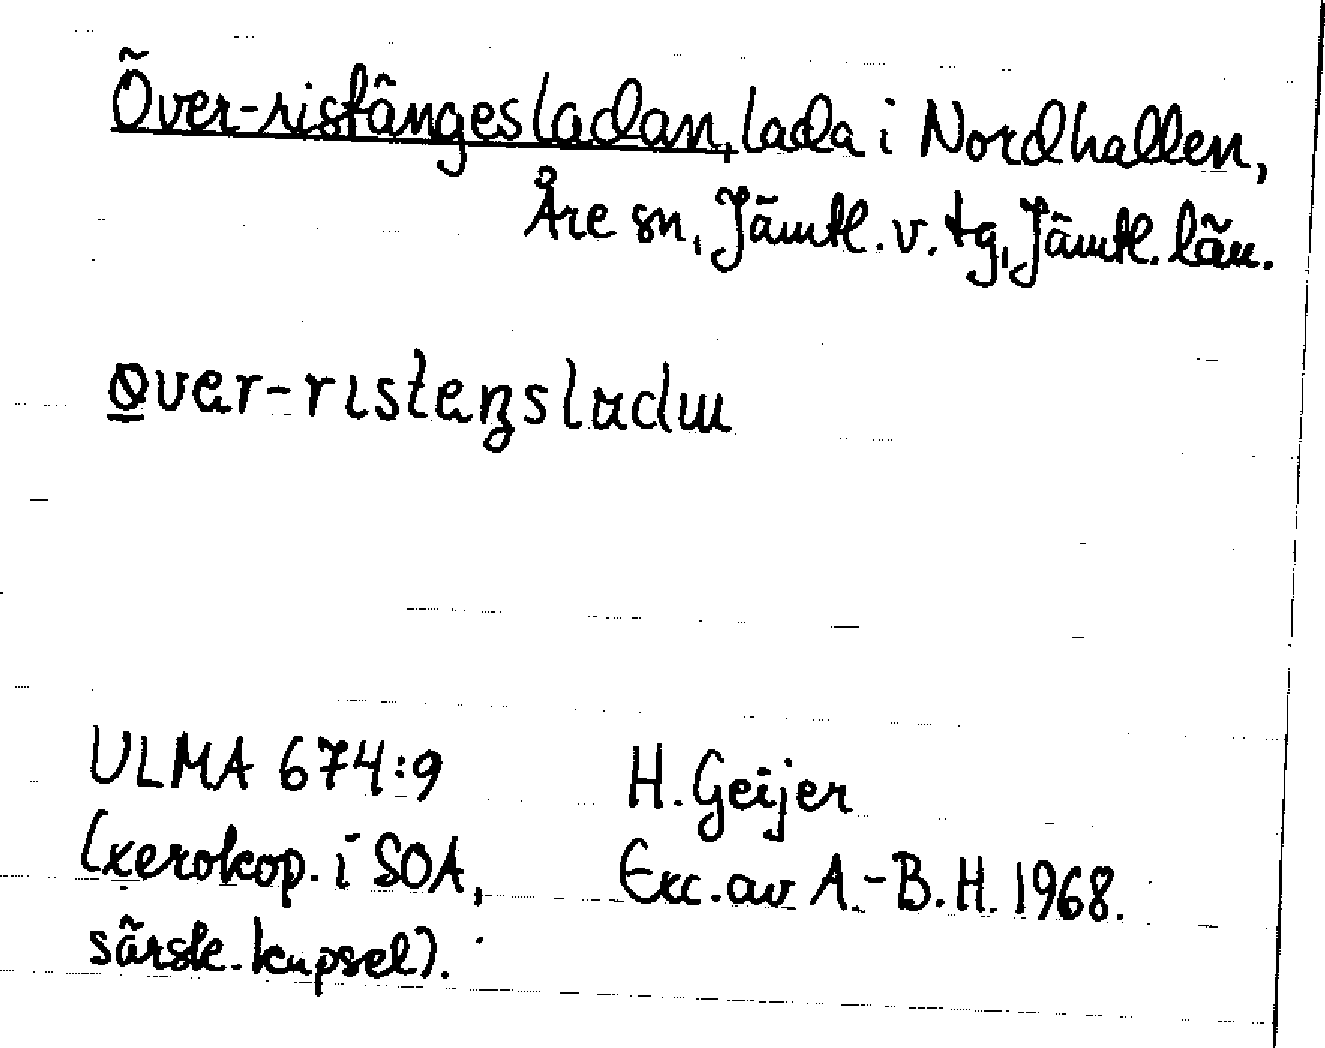 Över-ristängesladan, lada i Nordhallen,
Åre sn, Jämtl. v. tg, Jämtl. län.
øvar-ristaŋsladɯ
ULMA 674:9
H. Geijer
(xerokop. i SOA,
Exc. av A.-B. H. 1968.
särsk. kapsel).